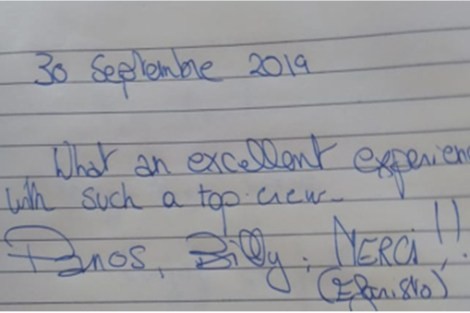 30 Septembre 2019
What an excellent experien
with such a top crew.
Panos, Billy, MERCI!!
(Efkaristo)